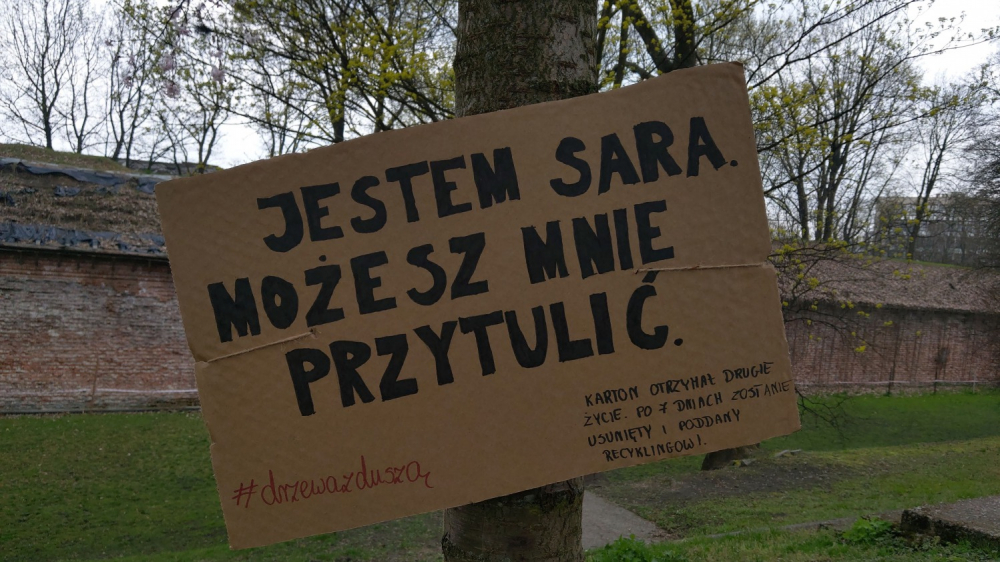 JESTEM SARA.
MOŻESZ MNIE
PRZYTULIĆ.
KARTON OTRZYMAŁ DRUGIE
ŻYCIE. PO 7 DNIACH ZOSTANIE
USUNIĘTY I PODDANY
RECYKLINGOWI.
#drzewazduszą